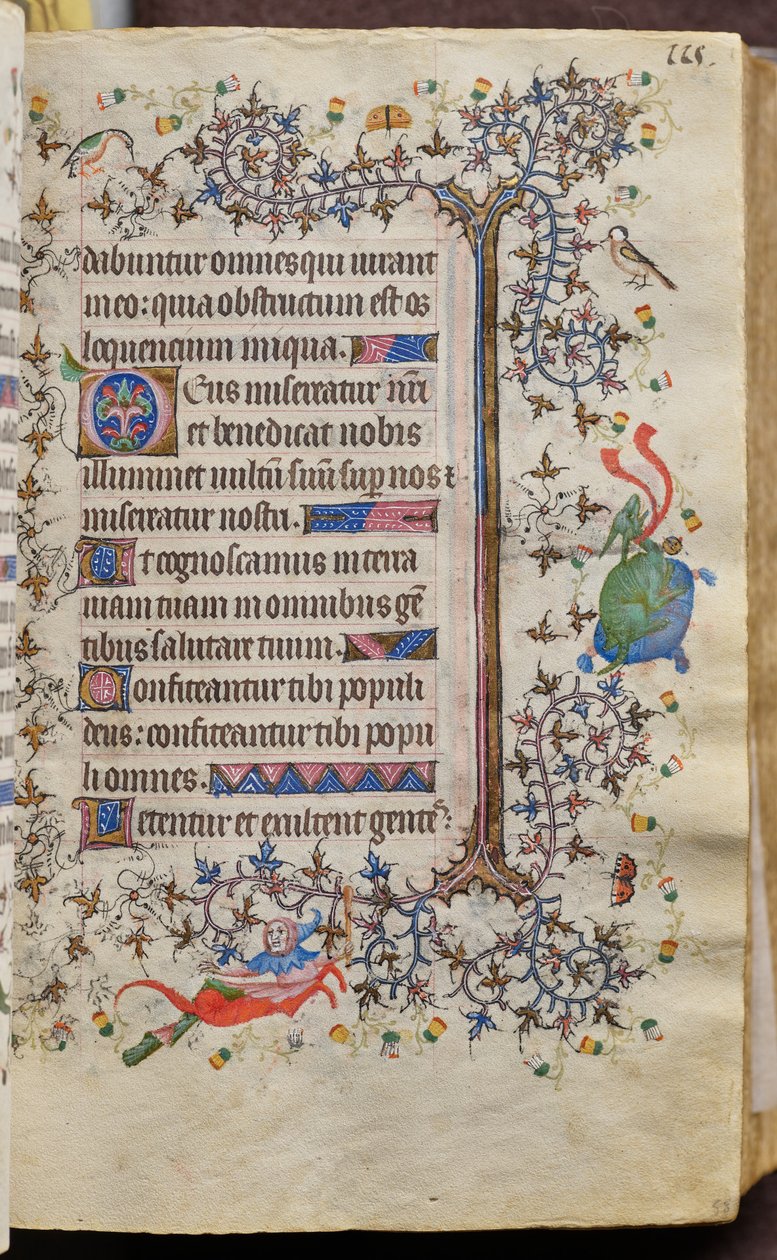 115.
dabuntur omnes qui iurant
in eo: quia obstructum est os
loquentium iniqua.
Deus misereatur nr̄i
et benedicat nobis
illuminet uultū suū sup nos ⁊
misereatur nostri.
Ut cognoscamus in terra
uiam tuam in omnibus gē
tibus salutare tuum.
Confiteantur tibi populi
deus: confiteantur tibi popu
li omnes.
Letentur et exultent gentes:
58